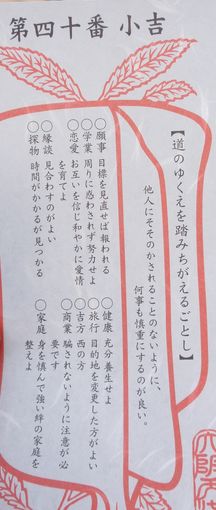 第四十番 小吉
【道のゆくえを踏みちがえるごとし】
他人にそそのかされることのないように、
何事も慎重にするのが良い。
〇願事 目標を見直せば報われる
〇学業 周りに惑わされず努力せよ
〇恋愛 お互いを信じ和やかに愛情
を育てよ
〇縁談 見合わすのがよい
〇探物 時間がかかるが見つかる
〇健康 充分養生せよ
〇旅行 目的地を変更した方がよい
〇吉方 西の方
〇商業 騙されないように注意が必
要です
〇家庭 身を慎んで強い絆の家庭を
整えよ